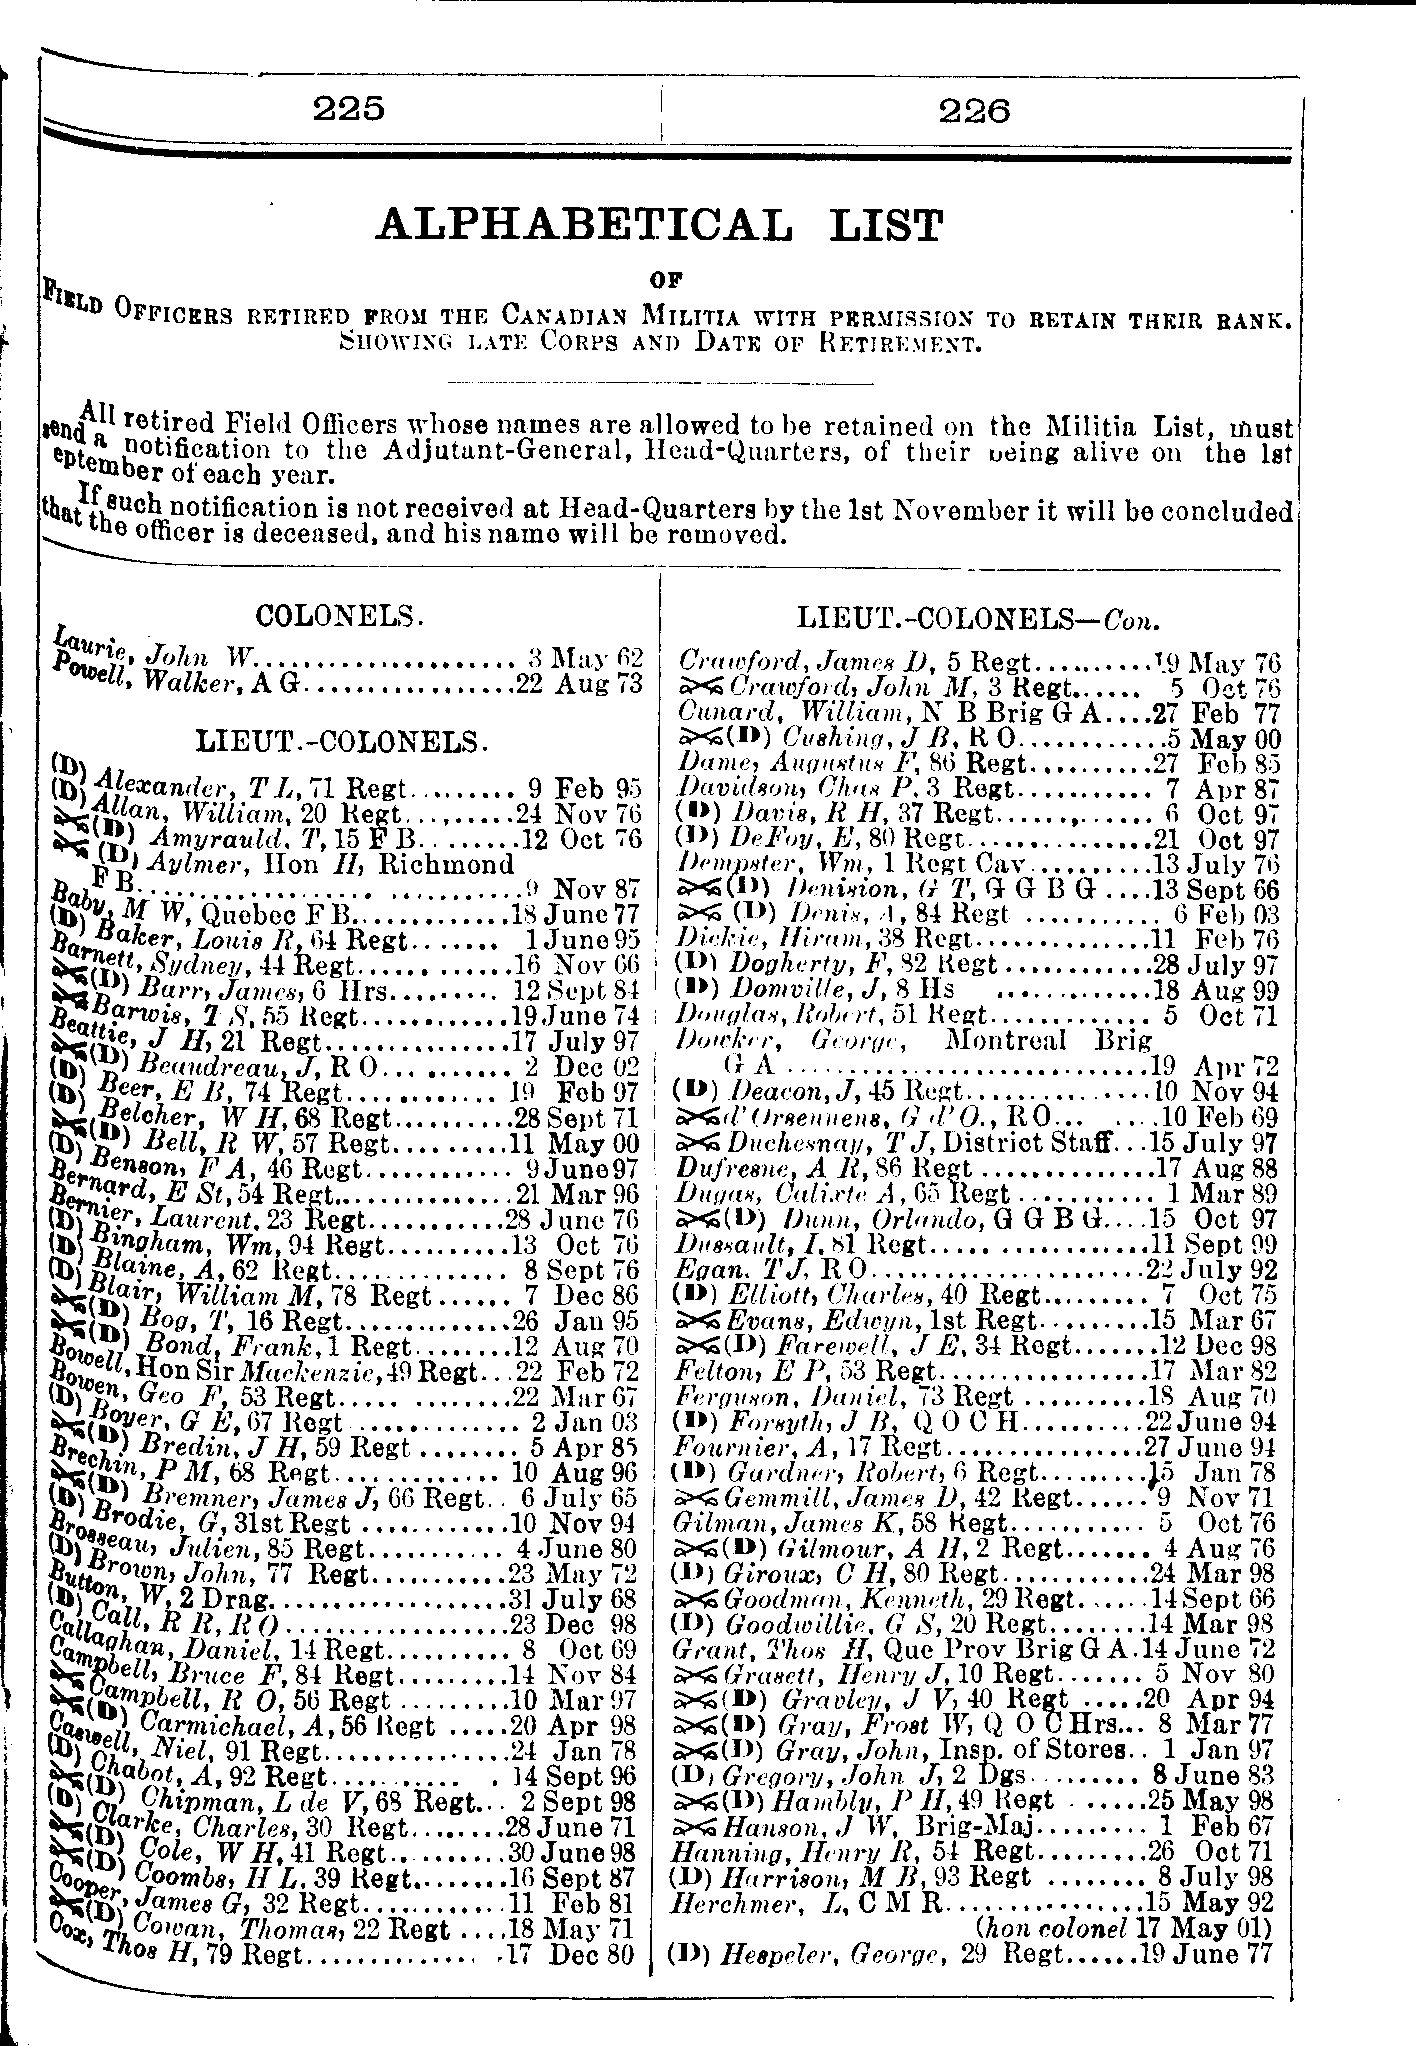 225
226
ALPHABETICAL LIST
OF
FIELD OFFICERS RETIRED FROM THE CANADIAN MILITIA WITH PERMISSION TO RETAIN THEIR RANK.
SHOWING LATE CORPS AND DATE OF RETIREMENT.
All retired Field Officers whose names are allowed to be retained on the Militia List, must
send a notification to the Adjutant-General, Head-Quarters, of their being alive on the 1st
eptember of each year.
If such notification is not received at Head-Quarters by the 1st November it will be concluded
that the officer is deceased, and his name will be removed.
COLONELS.
Laurie, John W..................... 3 May 62
Powell, Walker, A G.................22 Aug 73
LIEUT.-COLONELS.
(D) Alexander, T L, 71 Regt......... 9 Feb 95
(D) Allan, William, 20 Regt.........24 Nov 76
(D) Amyrauld, T, 15 F B........12 Oct 76
(D) Aylmer, Hon H, Richmond
F B..............................9 Nov 87
Baby, M W, Quebec F B............18 June 77
(D) Baker, Louis R, 64 Regt....... 1 June 95
Barnett, Sydney, 44 Regt............16 Nov 66
(D) Barr, James, 6 Hrs......... 12 Sept 84
Barwis, T S, 55 Regt............19 June 74
Beattie, J H, 21 Regt...............17 July 97
(D) Beaudreau, J, R O.......... 2 Dec 02
(D) Beer, E B, 74 Regt............ 19 Feb 97
(D) Belcher, W H, 68 Regt..........28 Sept 71
(D) Bell, R W, 57 Regt.........11 May 00
(D) Benson, F A, 46 Regt............ 9 June 97
Bernard, E St, 54 Regt..............21 Mar 96
Bernier, Laurent, 23 Regt...........28 June 76
(D) Bingham, Wm, 94 Regt..........13 Oct 76
(D) Blaine, A, 62 Regt.............. 8 Sept 76
(D) Blair, William M, 78 Regt...... 7 Dec 86
(D) Bog, T, 16 Regt.............26 Jan 95
(D) Bond, Frank, 1 Regt........12 Aug 70
Bowell, Hon Sir Mackenzie, 49 Regt...22 Feb 72
Bowen, Geo F, 53 Regt..............22 Mar 67
(D) Boyer, G E, 67 Regt ............ 2 Jan 03
(D) Bredin, J H, 59 Regt ........ 5 Apr 85
Brechin, P M, 68 Regt............. 10 Aug 96
(D) Bremner, James J, 66 Regt.. 6 July 65
(D) Brodie, G, 31st Regt ............10 Nov 94
Brosseau, Julien, 85 Regt........... 4 June 80
(D) Brown, John, 77 Regt...........23 May 72
Button, W, 2 Drag...................31 July 68
(D) Call, R R, R O..................23 Dec 98
Callaghan, Daniel, 14 Regt.......... 8 Oct 69
Campbell, Bruce F, 84 Regt.........14 Nov 84
Campbell, R O, 56 Regt .........10 Mar 97
(D) Carmichael, A, 56 Regt .....20 Apr 98
Caswell, Niel, 91 Regt...............24 Jan 78
(D) Chabot, A, 92 Regt.......... . 14 Sept 96
(D) Chipman, L de V, 68 Regt... 2 Sept 98
(D) Clarke, Charles, 30 Regt........28 June 71
(D) Cole, W H, 41 Regt..........30 June 98
(D) Coombs, H L, 39 Regt........16 Sept 87
Cooper, James G, 32 Regt............11 Feb 81
(D) Cowan, Thomas, 22 Regt ....18 May 71
Cox, Thos H, 79 Regt................17 Dec 80
LIEUT.-COLONELS—Con.
Crawford, James D, 5 Regt..........19 May 76
Crawford, John M, 3 Regt...... 5 Oct 76
Cunard, William, N B Brig G A....27 Feb 77
(D) Cushing, J B, R O............5 May 00
Dame, Augustus F, 86 Regt..........27 Feb 85
Davidson, Chas P, 3 Regt........... 7 Apr 87
(D) Davis, R H, 37 Regt............ 6 Oct 97
(D) DeFoy, E, 80 Regt...............21 Oct 97
Dempster, Wm, 1 Regt Cav..........13 July 76
(D) Denision, G T, G G B G ....13 Sept 66
(D) Denis, A, 84 Regt ........... 6 Feb 03
Dickie, Hiram, 38 Regt..............11 Feb 76
(D) Dogherty, F, 82 Regt ............28 July 97
(D) Domville, J, 8 Hs .............18 Aug 99
Douglas, Robert, 51 Regt............ 5 Oct 71
Dowker, George, Montreal Brig
G A .............................19 Apr 72
(D) Deacon, J, 45 Regt...............10 Nov 94
d'Orsennens, G d'O., R O... ....10 Feb 69
Duchesnay, T J, District Staff...15 July 97
Dufresne, A R, 86 Regt .............17 Aug 88
Dugas, Calixte A, 65 Regt .......... 1 Mar 89
(D) Dunn, Orlando, G G B G....15 Oct 97
Dussault, I, 81 Regt..................11 Sept 99
Egan, T J, R O.....................22 July 92
(D) Elliott, Charles, 40 Regt......... 7 Oct 75
Evans, Edwyn, 1st Regt.........15 Mar 67
(D) Farewell, J E, 34 Regt.......12 Dec 98
Felton, E P, 53 Regt.................17 Mar 82
Ferguson, Daniel, 73 Regt ..........18 Aug 70
(D) Forsyth, J B, Q O C H..........22 June 94
Fournier, A, 17 Regt................27 June 94
(D) Gardner, Robert, 6 Regt.........15 Jan 78
Gemmill, James D, 42 Regt...... 9 Nov 71
Gilman, James K, 58 Regt........... 5 Oct 76
(D) Gilmour, A H, 2 Regt....... 4 Aug 76
(D) Giroux, C H, 80 Regt...........24 Mar 98
Goodman, Kenneth, 29 Regt......14 Sept 66
(D) Goodwillie, G S, 20 Regt........14 Mar 98
Grant, Thos H, Que Prov Brig G A.14 June 72
Grasett, Henry J, 10 Regt....... 5 Nov 80
(D) Gravley, J V, 40 Regt .....20 Apr 94
(D) Gray, Frost W, Q O C Hrs... 8 Mar 77
(D) Gray, John, Insp. of Stores.. 1 Jan 97
(D) Gregory, John J, 2 Dgs......... 8 June 83
(D) Hambly, P H, 49 Regt ......25 May 98
Hanson, J W, Brig-Maj......... 1 Feb 67
Hanning, Henry R, 54 Regt.........26 Oct 71
(D) Harrison, M B, 93 Regt ........ 8 July 98
Herchmer, L, C M R................15 May 92
(hon colonel 17 May 01)
(D) Hespeler, George, 29 Regt......19 June 77